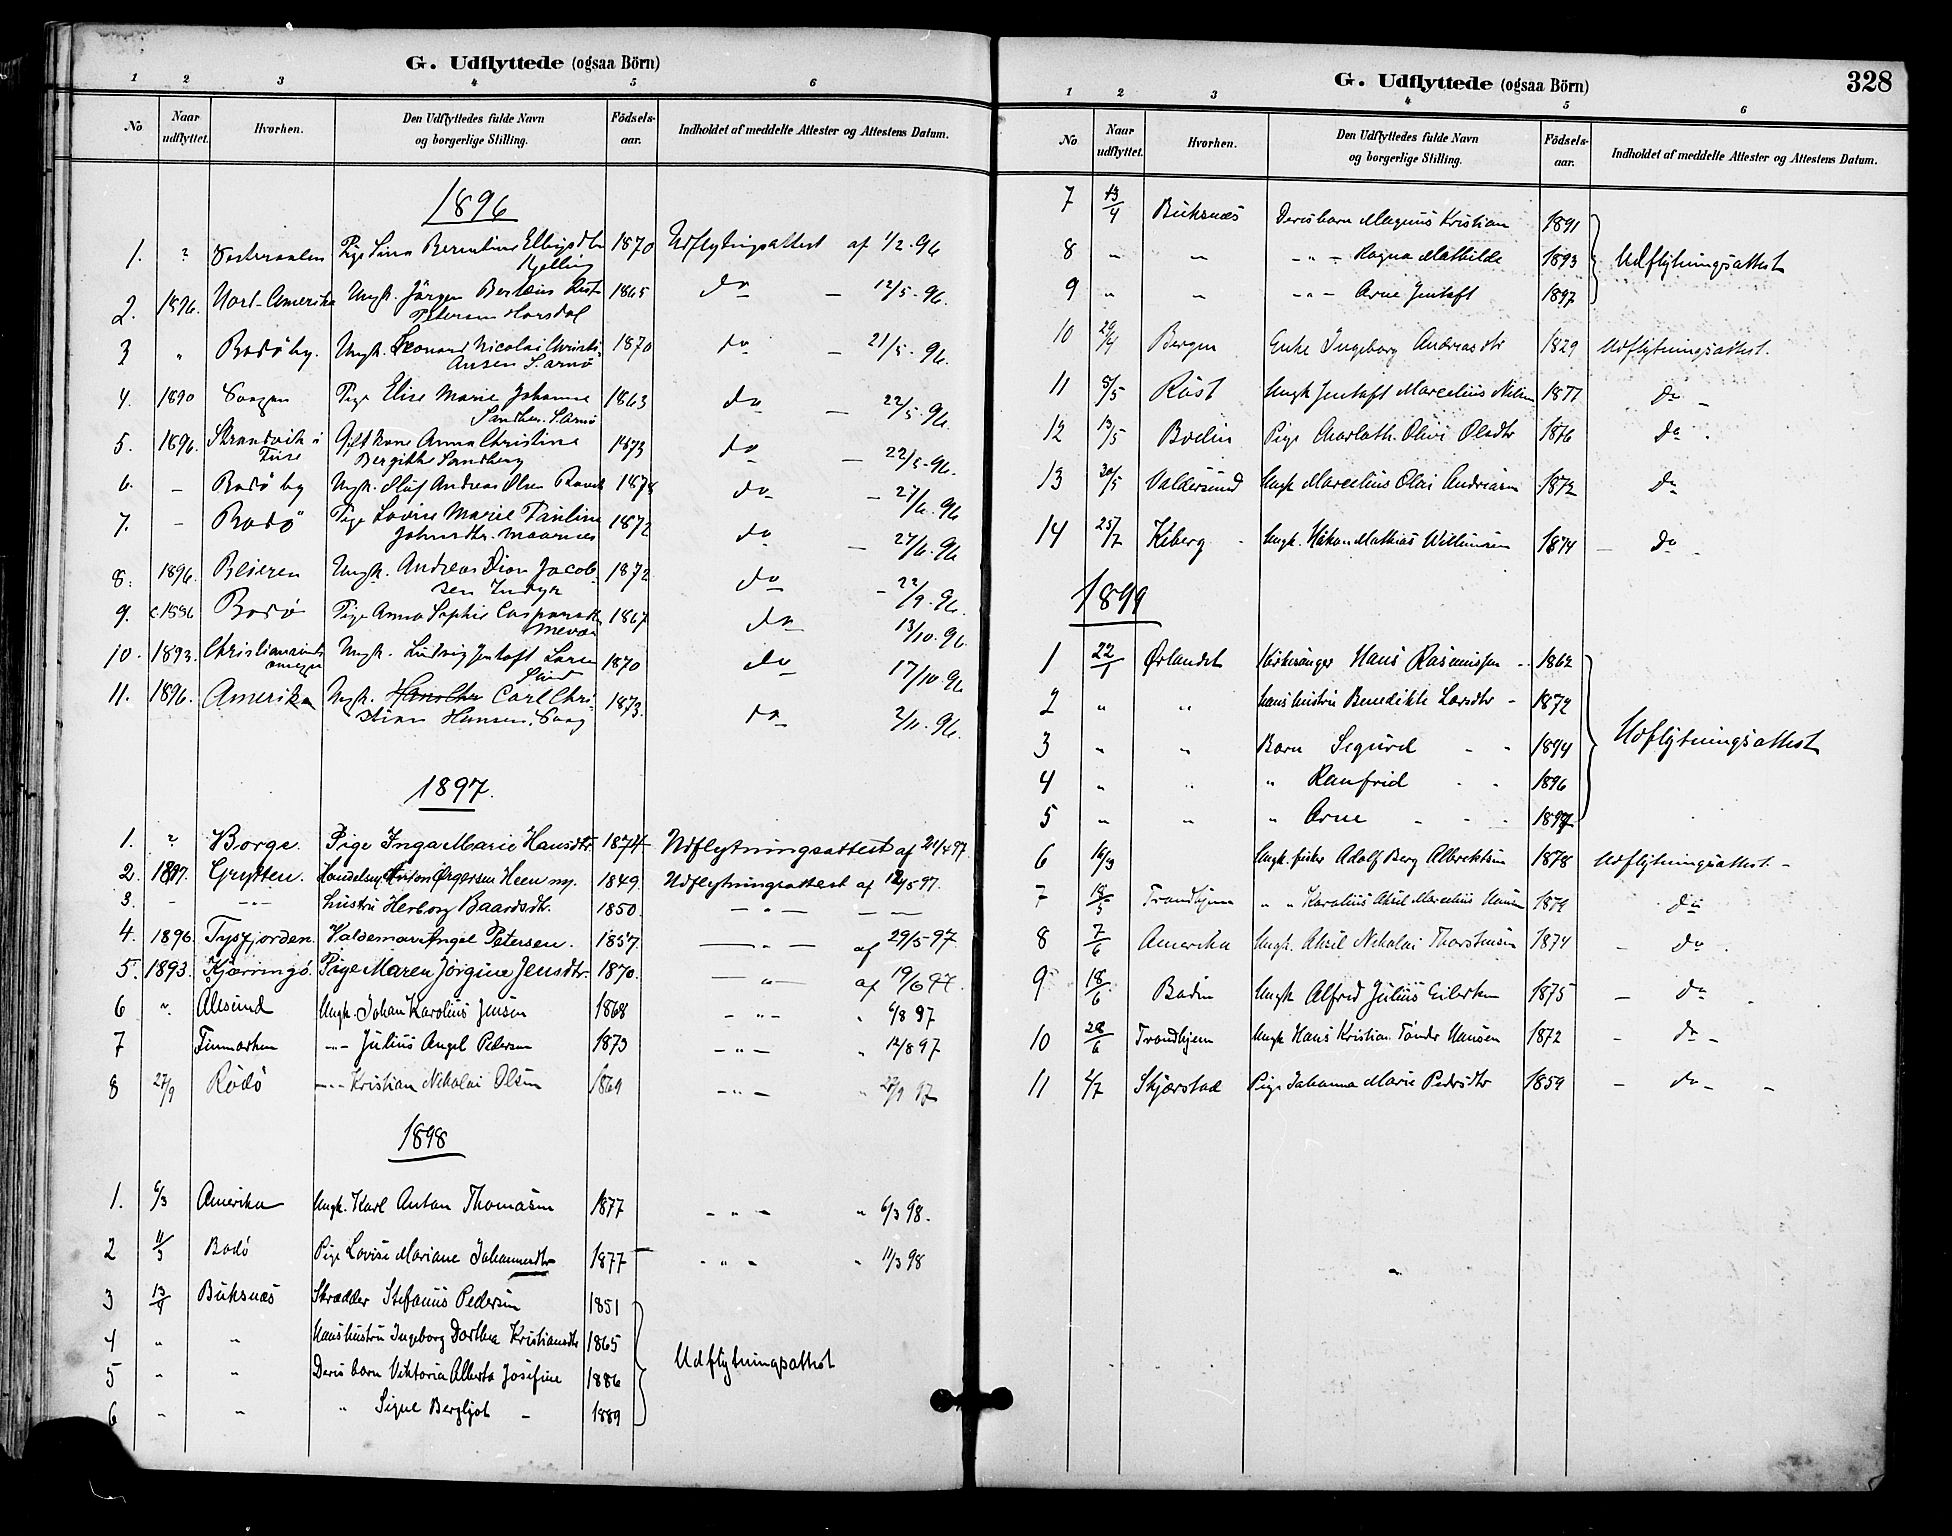 G. Udflyttede (ogsaa Börn)
1 2 3 4 5 6
No Naar udflyttet. Hvorhen. Den Udflyttedes fulde Navn og borgerlige Stilling. Födsels-aar. Indholdet af meddelte Attester og Attestens Datum.
1896
1. " Vesteraalen Pige Sina Berntine Ellingsdtr 1870 Udflytingsattest af 1/2-96
Kjelling
2. 1896. Nord-Amerika Ungk. Jörgen Bertæus 1865 do — 12/5-96.
Petersen Horsdal
3 " Bodö by. Ungk. Leonard Nicolai Christi- 1870 do — 21/5-96.
ansen S. arnö
4. 1890 Pige Elise Marie Johanna 1863 do — 22/5-96.
Sandhor. S. arnö
5. 1896. Strandvik i Gift kone Anna Christine 1873 do — 22/5-96.
Fuse Bergitte Sandberg
6. — Bodö by Ungk. Oluf Andreas Olsen 1878 do — 27/6-96
7. — Bodö Pige Lovise Marie Pauline 1872 do — 27/6-96
Johnsdtr. Maarnes
8. 1896. Beieren Ungk. Andreas Dion Jacob- 1872 do — 22/9-96.
sen Indyr
9. 1896 Bodö Pige Anna Sophie 1867 do 13/10-96.
Mevær
10. 1893. Ungk. Ludvig Jentoft 1870 do 17/10-96
11. 1896. Amerika Ungk. Carl Chri- 1873. do 2/11-96.
stian Hansen, Vaag
1897.
1. " Borge. Pige Inga Marie Hansdtr. 1874 Udflytningsattest af 21/4 97.
2. 1897. Grytten. Handelsm. Anton Heen 1849. Udflytningsattest af 12/5 97.
3. — — " — hustru Herborg Baardsdtr. 1850. — " — — —
4. 1896. Tysfjorden. Valdemar Angel Petersen. 1857. — " — af 29/5-97.
5. 1893. Kjærringö. Pige Maren Jörgine Jensdtr. 1870. — " — af 19/6 97.
6 " Alesund Ungk. Johan Karolius Jensen 1868 — " — " 6/8 97
7 Finmarken — " — Julius Angel Pedersen 1873 — " — " 14/8 97
8 27/9 Rödö — " — Kristian Nikolai Olsen 1869 — " — " 27/9 97
1898
1. 6/3 Amerika Ungk. Karl Anton Thomasen 1877 — " — " 6/3 98.
2 11/3 Bodö Pige Lovise Mariane Johannesdtr 1877 — " — " 11/3 98
3 13/4 Buksnæs Skrædder Stefanus Pedersen 1851
4 " " Hans hustru Ingeborg Dorthea Kristiansdtr 1865 Udflytningsattest
5 " " Deres barn Viktoria Alberta Josefine 1886
6 " " " Signe Bergljot — 1889
G. Udflyttede (ogsaa Börn) 328
1 2 3 4 5 6
No Naar udflyttet. Hvorhen. Den Udflyttedes fulde Navn og borgerlige Stilling. Födsels-aar. Indholdet af meddelte Attester og Attestens Datum.
7 13/4 Buksnæs Deres barn Magnus Kristian 1891
8 " " — " — Ragna Mathilde 1893 Udflytningsattest
9 " " — " — Arne Jentoft 1897
10 29/4 Bergen Enke Ingeborg Andreasdtr 1829 Udflytningsattest.
11 5/5 Röst Ungk Jentoft Marcelius Nilsen 1877 do —
12 13/5 Bodin Pige Charloth. Olivi Olsdtr 1876 do .
13 30/5 Valdersund Ungk Marcelius Olai Andreasen 1872 do
14 25/7 Kiberg Ungk. Håkon Mathias Willumsen 1874 — do —
1899
1 22/1 Ørlandet Kirkesanger Hans Rasmussen 1862
2 " " Hans hustru Benedikte Larsdtr 1872
3 " " Barn Sigurd 1894 Udflytningsattest
4 " " " Ranfrid 1896
5 " " " Arne 1897
6 16/3 Ungk. fisker Adolf Berg Albrektsen 1878 Udflytningsattest. —
7 18/5 Trondhjem " " Karolius Aksel Marcelius Hansen 1879 do
8 7/6 Amerika Ungk. Aksel Nikolai Thorstensen 1874 — do .
9 18/6 Bodin Ungk Alfred Julius Eilertsen 1875 — do .
10 28/6 Trondhjem Ungk Hans Kristian Tönder Hansen 1872 — do —
11 2/7 Skjærstad Pige Johanna Marie Pedersdtr 1859 — do — —